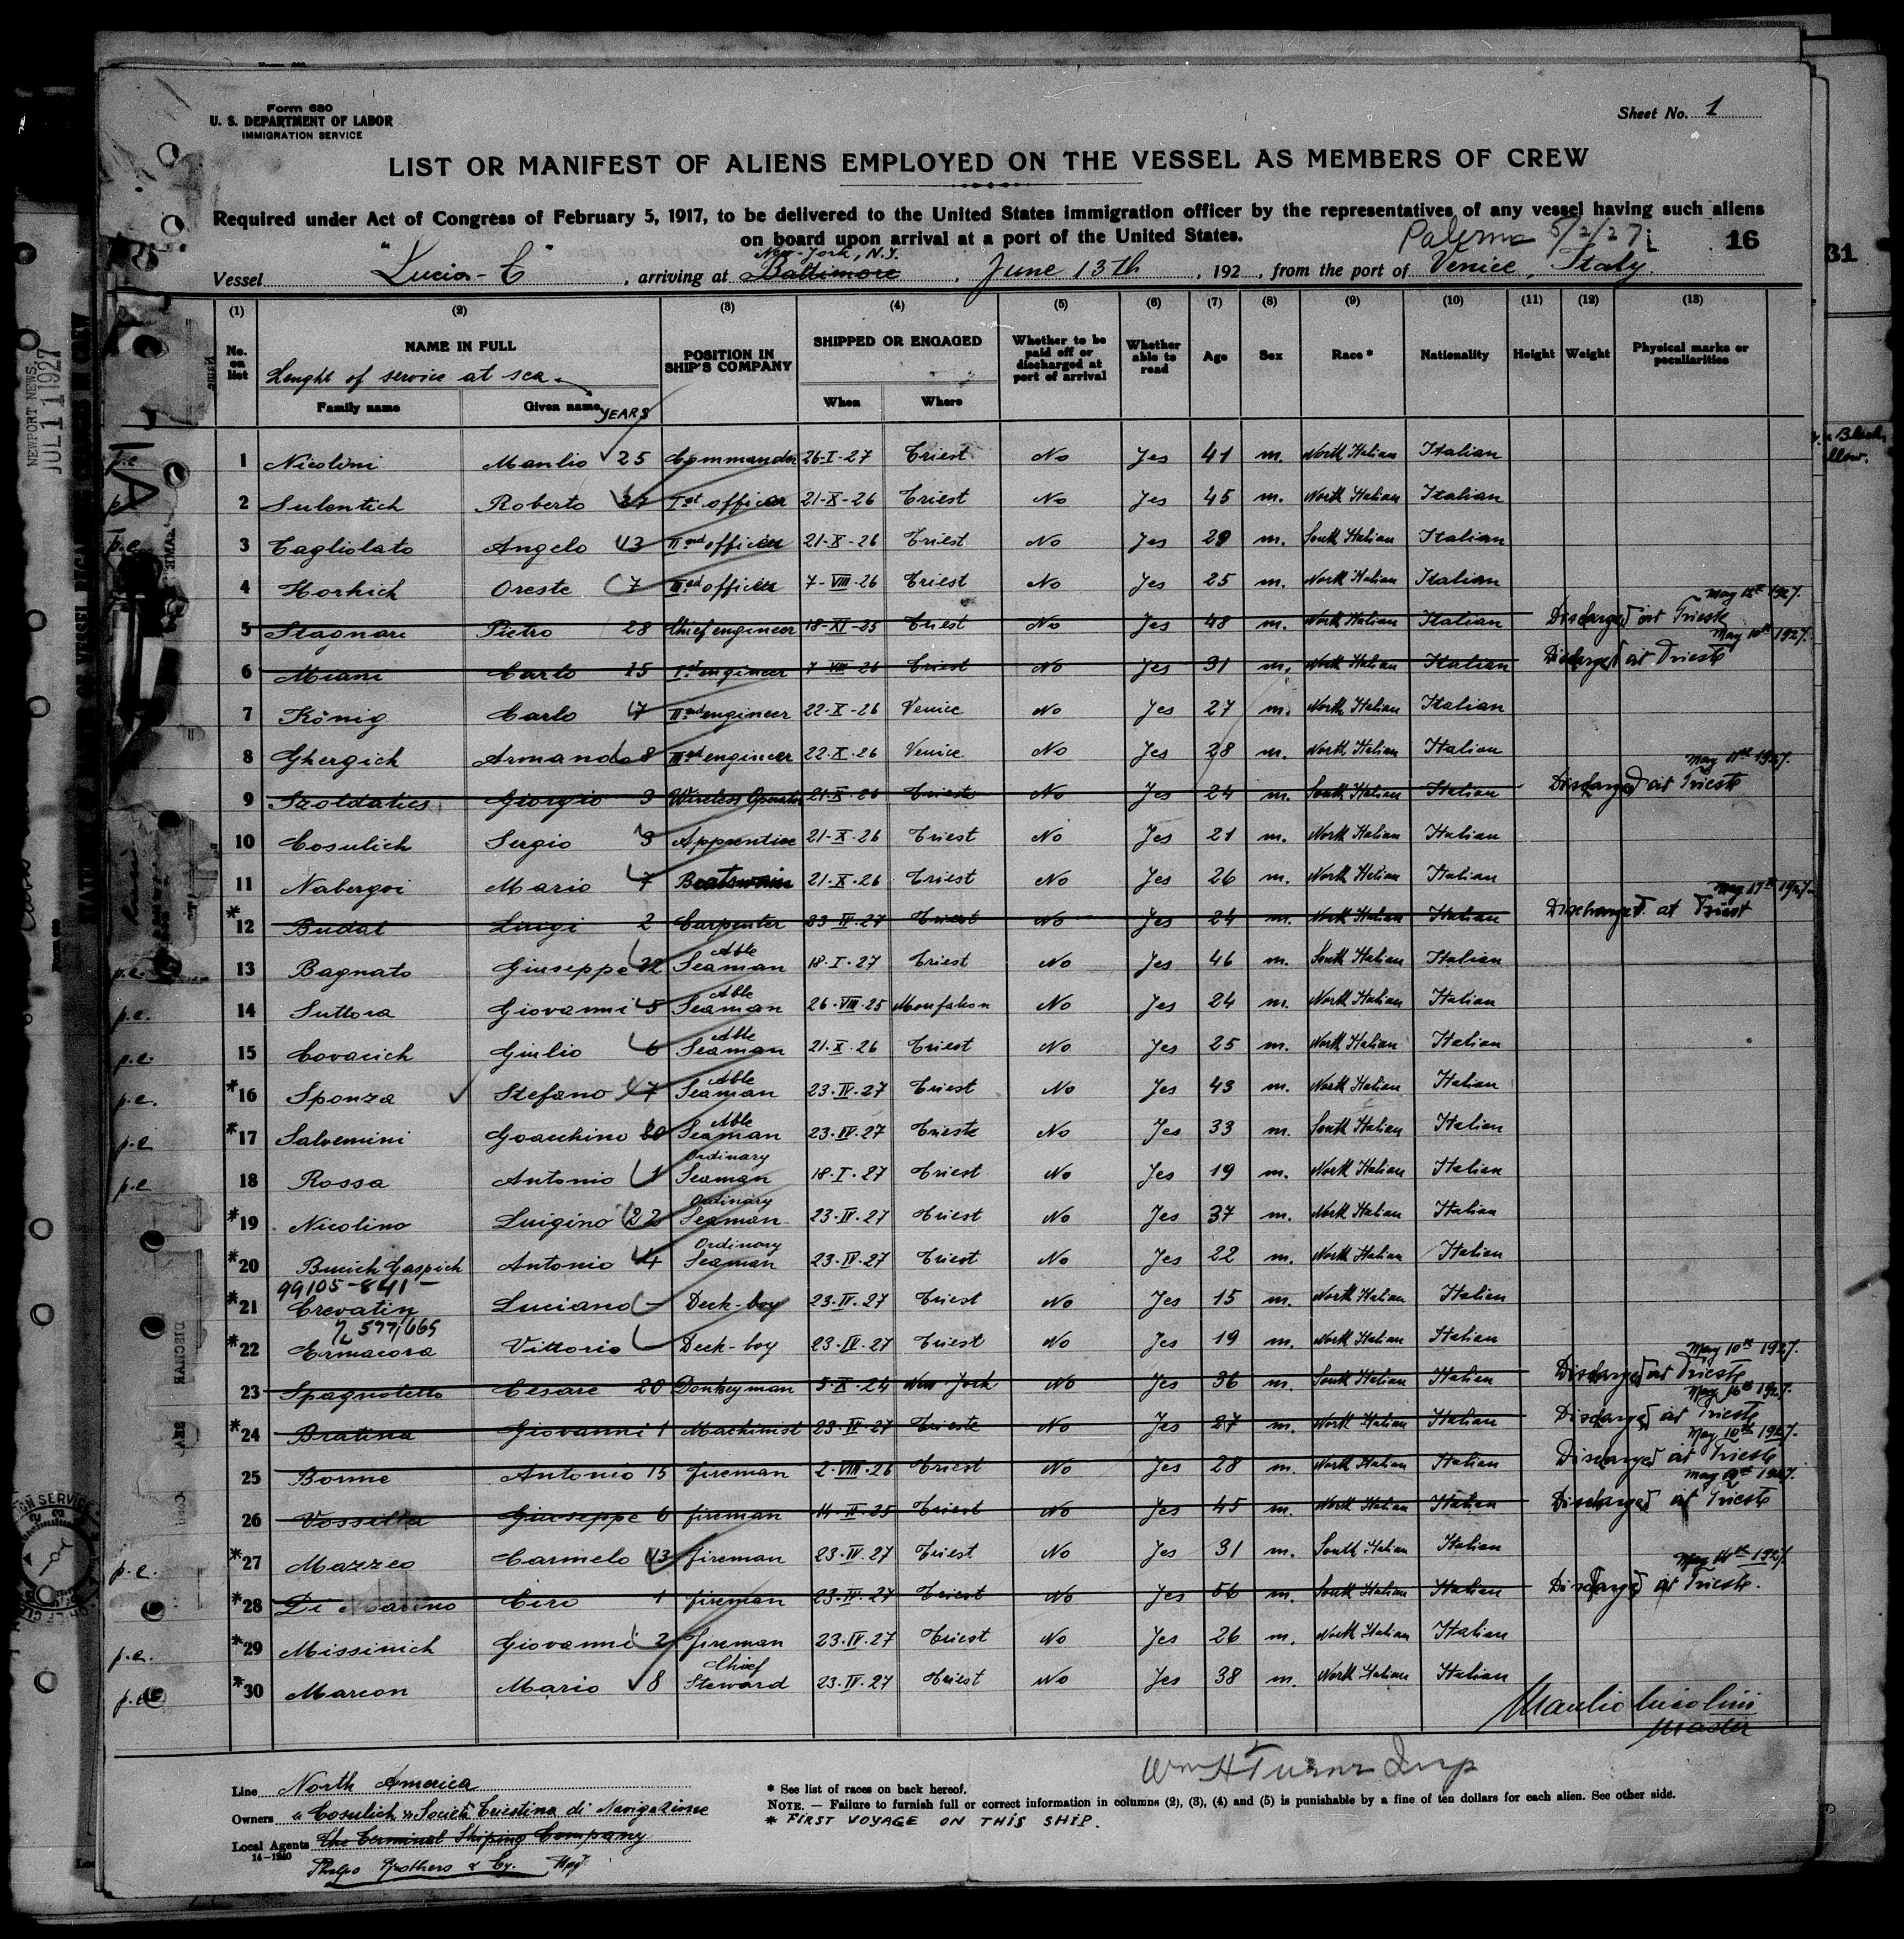 Form 680
U. S. DEPARTMENT OF LABOR
IMMIGRATION SERVICE
Sheet No. 1
LIST OR MANIFEST OF ALIENS EMPLOYED ON THE VESSEL AS MEMBERS OF CREW
Required under Act of Congress of February 5, 1917, to be delivered to the United States immigration officer by the representatives of any vessel having such aliens
on board upon arrival at a port of the United States.
Palermo 5/2/27
16
31
New-York, N.Y.
Vessel "Lucia-C", arriving at Baltimore, June 13th, 192 , from the port of Venice, Italy.
(1) (2) (3) (4) (5) (6) (7) (8) (9) (10) (11) (12) (13)
No. on list
NAME IN FULL
Lenght of service at sea
Family name Given name YEARS
POSITION IN SHIP'S COMPANY
SHIPPED OR ENGAGED
When Where
Whether to be paid off or discharged at port of arrival
Whether able to read
Age Sex Race * Nationality Height Weight
Physical marks or peculiarities
NEWPORT NEWS,
JUL 11 1927
p.e 1 Nicolini Manlio 25 Commander 26-I-27 Triest No Yes 41 m. North Italian Italian
2 Sulentich Roberto 27 Ist officer 21-X-26 Triest No Yes 45 m. North Italian Italian
p.e 3 Tagliolato Angelo 13 IInd officer 21-X-26 Triest No Yes 29 m. South Italian Italian
4 Horhich Oreste 7 IIIrd officer 7-VIII-26 Triest No Yes 25 m. North Italian Italian
5 Stagnari Pietro 28 Chief engineer 18-XI-25 Triest No Yes 48 m. North Italian Italian Discharged at Trieste May 10th 1927.
6 Miani Carlo 15 Ist engineer 7-VIII-26 Triest No Yes 31 m. North Italian Italian Discharged at Trieste May 10th 1927.
7 König Carlo 7 IInd engineer 22-X-26 Venice No Yes 27 m. North Italian Italian
8 Ghergich Armando 8 IIIrd engineer 22.X.26 Venice No Yes 28 m. North Italian Italian
9 Szoldatics Giorgio 3 Wireless Operator 21-X-26 Trieste No Yes 24 m. South Italian Italian Discharged at Trieste May 11th 1927.
10 Cosulich Sergio 3 Apprentice 21-X-26 Triest No Yes 21 m. North Italian Italian
11 Nabergoi Mario 7 Boatswain 21-X-26 Triest No Yes 26 m. North Italian Italian
*12 Budal Luigi 2 Carpenter 23 IV-27 Triest No Yes 24 m. North Italian Italian Discharged at Triest May 17th 1927.
p.e. 13 Bagnato Giuseppe 32 Able Seaman 18.I.27 Triest No Yes 46 m. South Italian Italian
p.e. 14 Suttora Giovanni 5 Able Seaman 26.VIII.25 Monfalcon No Yes 24 m. North Italian Italian
p.e. 15 Covacich Giulio 6 Able Seaman 21.X.26 Triest No Yes 25 m. North Italian Italian
p.e. *16 Sponza Stefano 7 Able Seaman 23.IV.27 Triest No Yes 43 m. North Italian Italian
p.e *17 Salvemini Goacchino 20 Able Seaman 23.IV.27 Trieste No Yes 33 m. South Italian Italian
p.e 18 Rossa Antonio 1 Ordinary Seaman 18.I.27 Triest No Yes 19 m. North Italian Italian
*19 Nicolino Luigino 22 Ordinary Seaman 23.IV.27 Triest No Yes 37 m. North Italian Italian
*20 Bucich Gaspich Antonio 4 Ordinary Seaman 23.IV.27 Triest No Yes 22 m. North Italian Italian
99105-841-
*21 Crevatin Luciano - Deck-boy 23.IV.27 Triest No Yes 15 m. North Italian Italian
577/665
*22 Ermacora Vittorio Deck-boy 23.IV.27 Triest No Yes 19 m. North Italian Italian
23 Spagnoletto Cesare 20 Donkeyman 5-X-24 New York No Yes 36 m. South Italian Italian Discharged at Trieste May 10th 1927.
*24 Bratina Giovanni 1 Machinist 23.IV.27 Trieste No Yes 27 m. North Italian Italian Discharged at Trieste May 10th 1927.
25 Bonne Antonio 15 fireman 2-VIII.26 Triest No Yes 28 m. North Italian Italian Discharged at Trieste May 10th 1927.
26 Vossilla Giuseppe 6 fireman 14-II-25 Triest No Yes 45 m. North Italian Italian Discharged at Trieste 1927.
p.e. *27 Mazzeo Carmelo 13 fireman 23.IV.27 Triest No Yes 31 m. South Italian Italian
*28 Di Marino Ciro 1 fireman 23.IV.27 Triest No Yes 56 m. South Italian Italian Discharged at Trieste. May 1927.
p.e. *29 Missinich Giovanni 2 fireman 23.IV.27 Triest No Yes 26 m. North Italian Italian
p.e *30 Marcon Mario 8 Chief Steward 23.IV.27 Triest No Yes 38 m. North Italian Italian
Manlio Nicolini
Master
Wm H Turner Insp
Line North America
Owners "Cosulich" Società Triestina di Navigazione
Local Agents The Terminal Shiping Company
14-1240
Phelps Brothers & Cy.
* See list of races on back hereof.
NOTE. — Failure to furnish full or correct information in columns (2), (3), (4) and (5) is punishable by a fine of ten dollars for each alien. See other side.
* FIRST VOYAGE ON THIS SHIP.